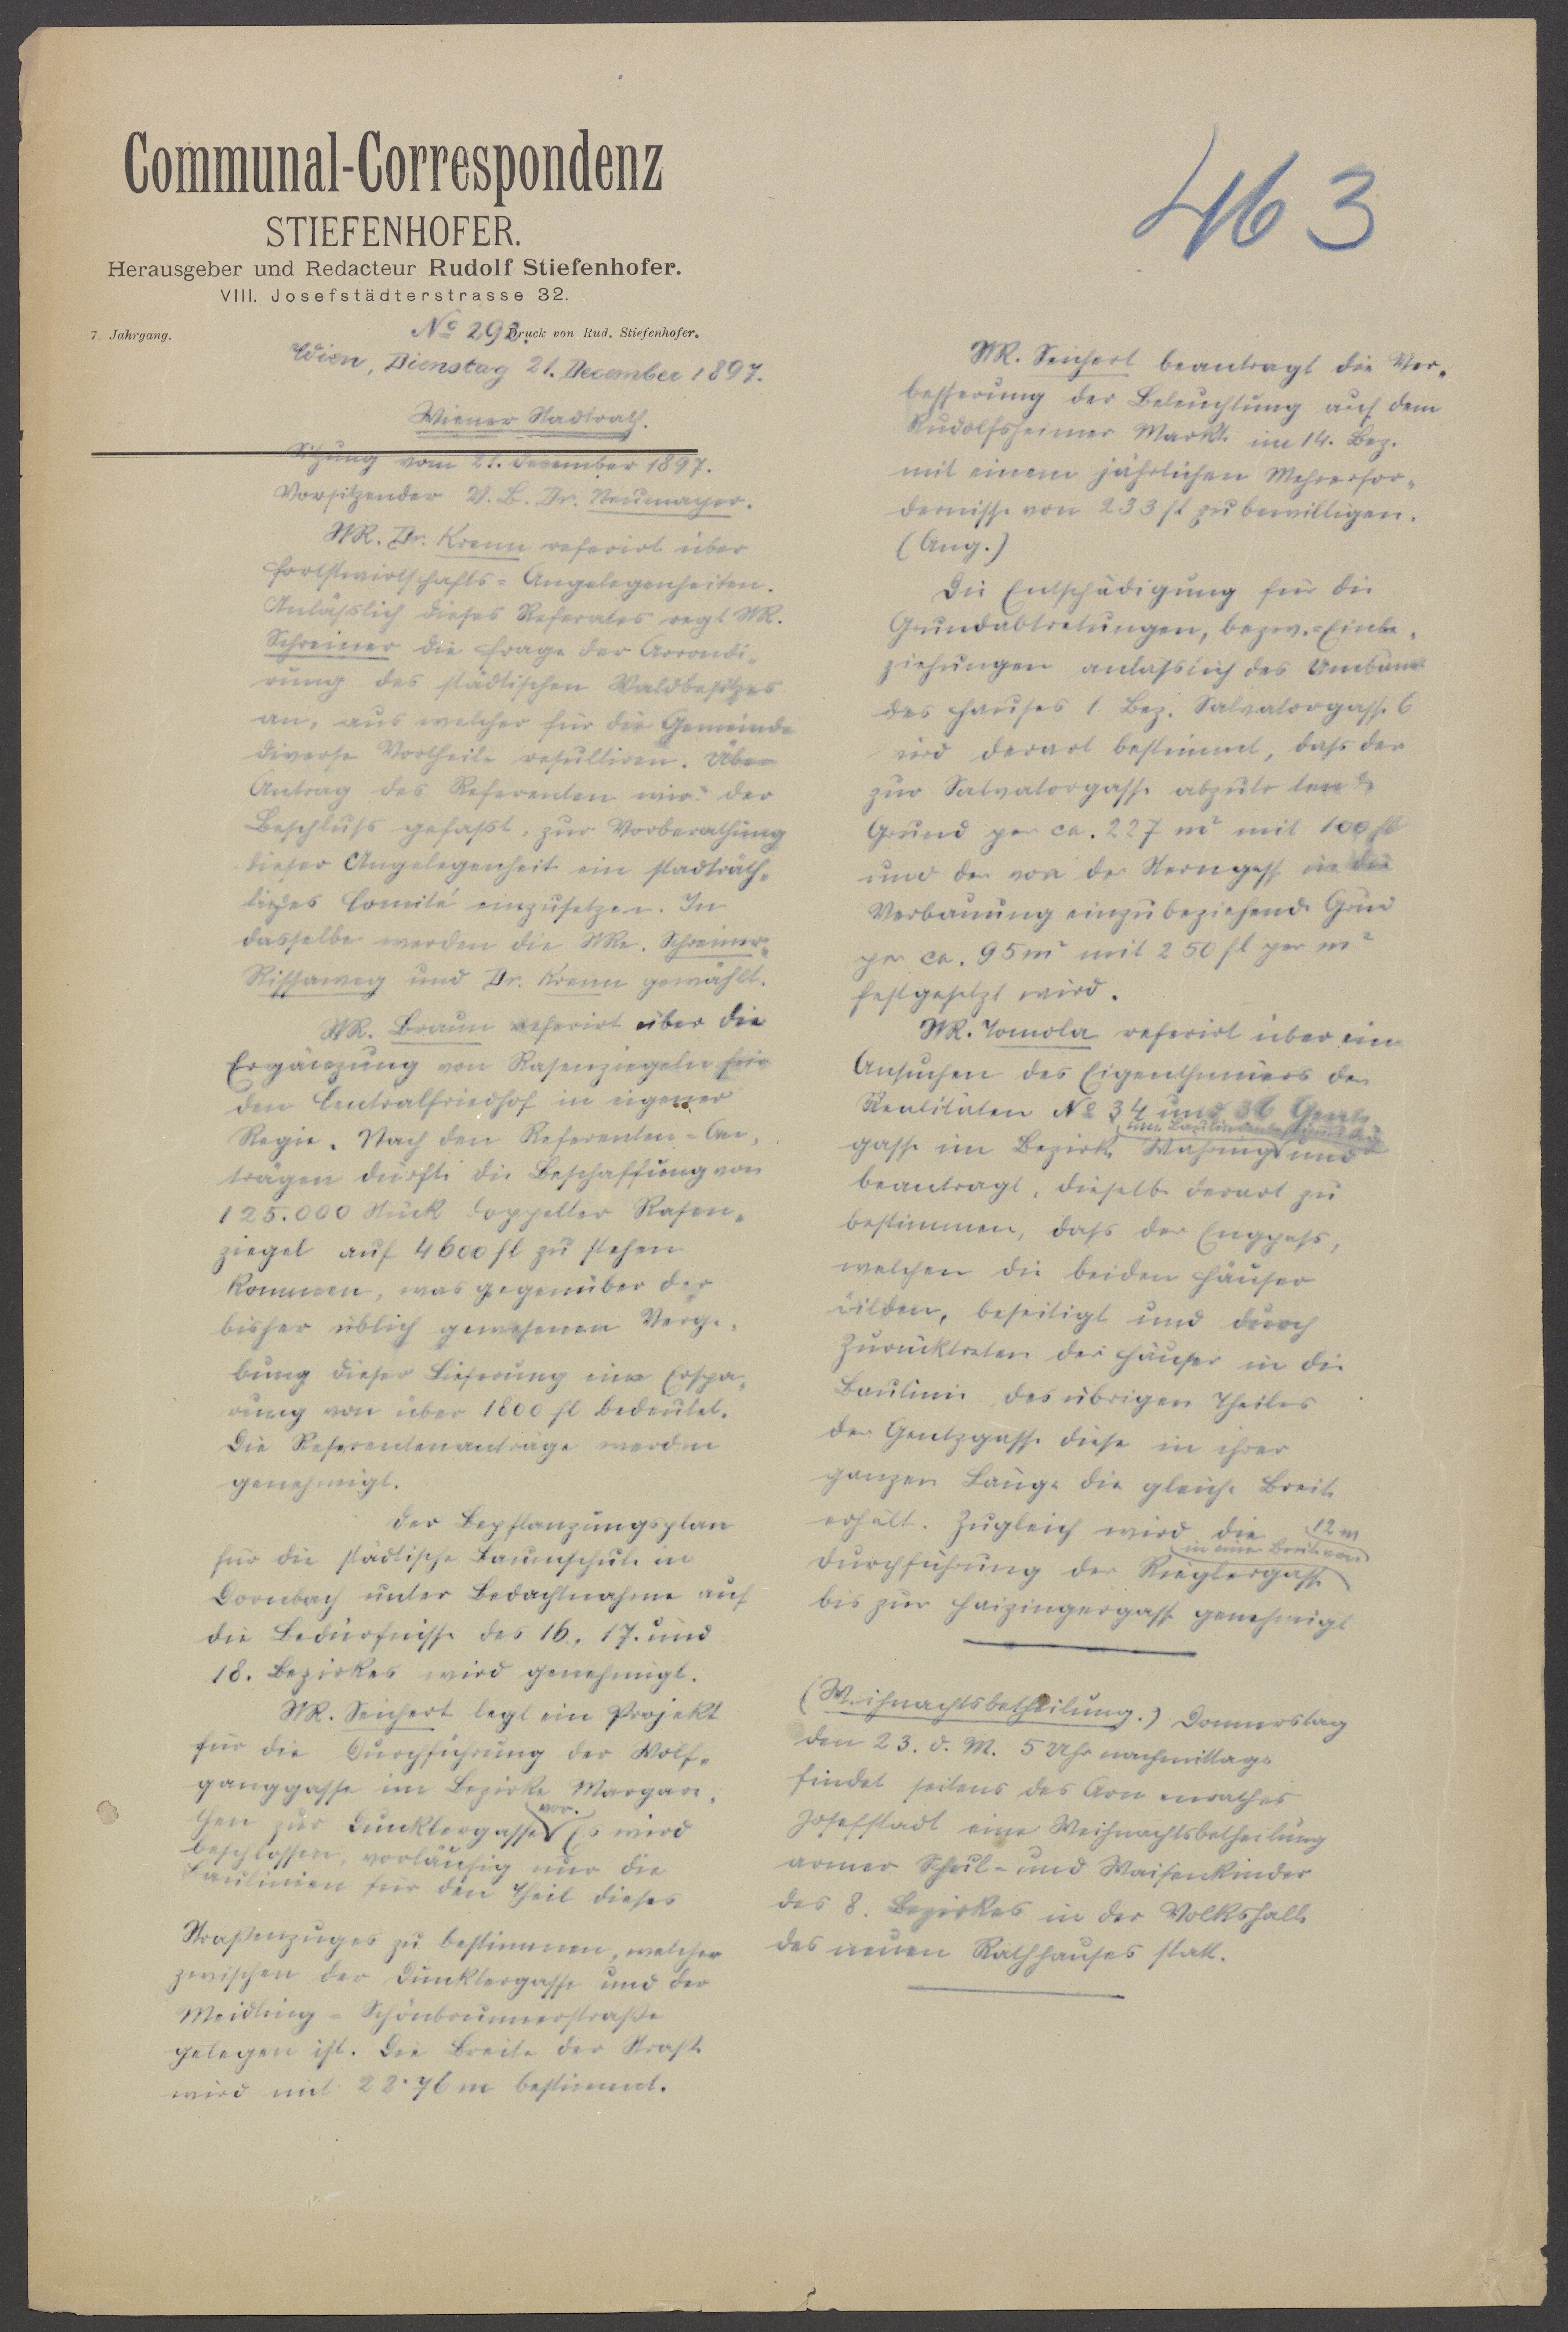 Communal-Correspondenz
STIEFENHOFER.
Herausgeber und Redacteur Rudolf Stiefenhofer.
VIII. Josefstädterstrasse 32.
7. Jahrgang.
No 293.
Druck von Rud. Stiefenhofer.
Wien, Dienstag 21. December 1897.
Wiener Stadtrath.
Sitzung vom 21. December 1897.
Vorsitzender V. B. Dr. Neumayer.
StR. Dr. Krenn referirt über
Forstwirtschafts-Angelegenheiten.
Anläßlich dieses Referates regt StR.
Schreiner die Frage der Arrondi-
rung des städtischen Waldbesitzes
an, aus welcher für die Gemeinde
diverse Vortheile resultiren. Über
Antrag des Referenten wird der
Beschluß gefaßt, zur Vorberathung
dieser Angelegenheit ein stadträth-
liches Comité einzusetzen. In
dasselbe werden die StRe. Schreiner,
Rissaweg und Dr. Krenn gewählt.
StR. Braun referirt über die
Ergänzung von Rasenziegeln für
den Centralfriedhof in eigener
Regie. Nach den Referenten-An-
trägen dürfte die Beschaffung von
125.000 Stück doppelter Rasen-
ziegel auf 4600 fl zu stehen
kommen, was gegenüber der
bisher üblich gewesenen Verge-
bung dieser Lieferung eine Erspa-
rung von über 1800 fl bedeutet.
Die Referentenanträge werden
genehmigt.
Der Bepflanzungsplan
für die städtische Baumschule in
Dornbach unter Bedachtnahme auf
die Bedürfnisse des 16., 17. und
18. Bezirkes wird genehmigt.
StR. Seichert legt ein Projekt
für die Durchführung der Wolf-
ganggasse im Bezirke Margare-
then zur Dunklergasse vor. Es wird
beschlossen, vorläufig nur die
Baulinien für den Theil dieses
Straßenzuges zu bestimmen, welcher
zwischen der Dunklergasse und der
Meidling-Schönbrunnerstraße
gelegen ist. Die Breite der Straße
wird mit 22.76 m bestimmt.
463
StR. Seichert beantragt die Ver-
besserung der Beleuchtung auf dem
Rudolfsheimer Markte im 14. Bez.
mit einem jährlichen Mehrerfor-
dernisse von 233 fl zu bewilligen.
(Ang.)
Die Entschädigung für die
Grundabtretungen, bezw. Einbe-
ziehungen anläßlich des Umbaues
des Hauses 1. Bez. Salvatorgasse 6
wird derart bestimmt, daß der
zur Salvatorgasse abzutretende
Grund per ca. 227 m² mit 100 fl
und der von der Sterngasse in die
Verbauung einzubeziehende Grund
per ca. 95 m² mit 250 fl per m²
festgesetzt wird.
StR. Tomola referirt über ein
Ansuchen des Eigenthümers der
Realitäten No 34 und 36 Gentz-
gasse im Bezirke Währing um Baulinienbestimmung und
beantragt, dieselbe derart zu
bestimmen, daß der Engpaß,
welchen die beiden Häuser
bilden, beseitigt und durch
Zurücktreten der Häuser in die
Baulinie des übrigen Theiles
der Gentzgasse diese in ihrer
ganzen Länge die gleiche Breite
erhält. Zugleich wird die
Durchführung der Rieglergasse in einer Breite von 12 m
bis zur Haizingergasse genehmigt
(Weihnachtsbetheilung.) Donnerstag
den 23. d. M. 5 Uhr nachmittags
findet seitens des Armenrathes
Josefstadt eine Weihnachtsbetheilung
armer Schul- und Waisenkinder
des 8. Bezirkes in der Volkshalle
des neuen Rathhauses statt.